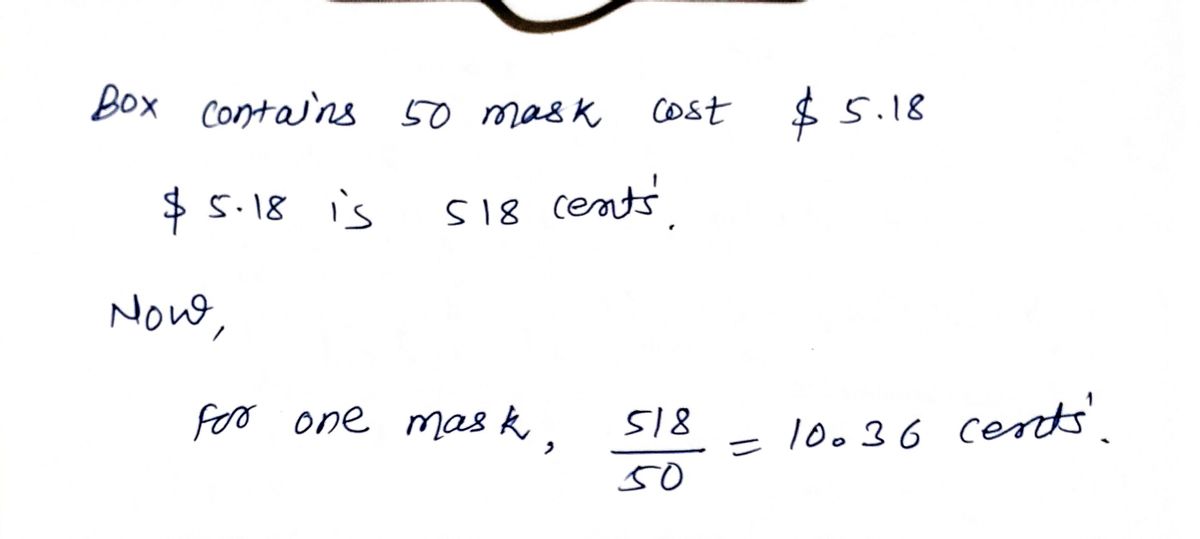 Box contains 50 mask cost $ 5.18
$ 5.18 is 518 cents.
Now,
for one mask, 518/50 = 10.36 cents.